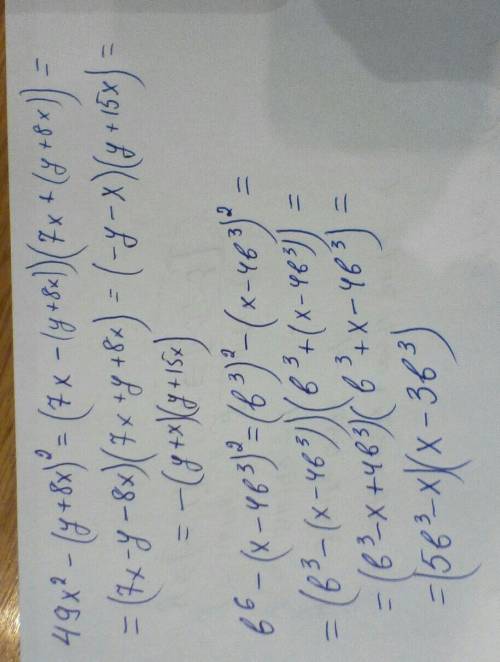 49x² - (y+8x)² = (7x - (y+8x))(7x + (y+8x)) =
= (7x - y - 8x)(7x + y + 8x) = (-y - x)(y + 15x) =
= -(y+x)(y+15x)
в⁶ - (x - 4в³)² = (в³)² - (x - 4в³)² =
= (в³ - (x - 4в³))(в³ + (x - 4в³)) =
= (в³ - x + 4в³)(в³ + x - 4в³) =
= (5в³ - x)(x - 3в³)